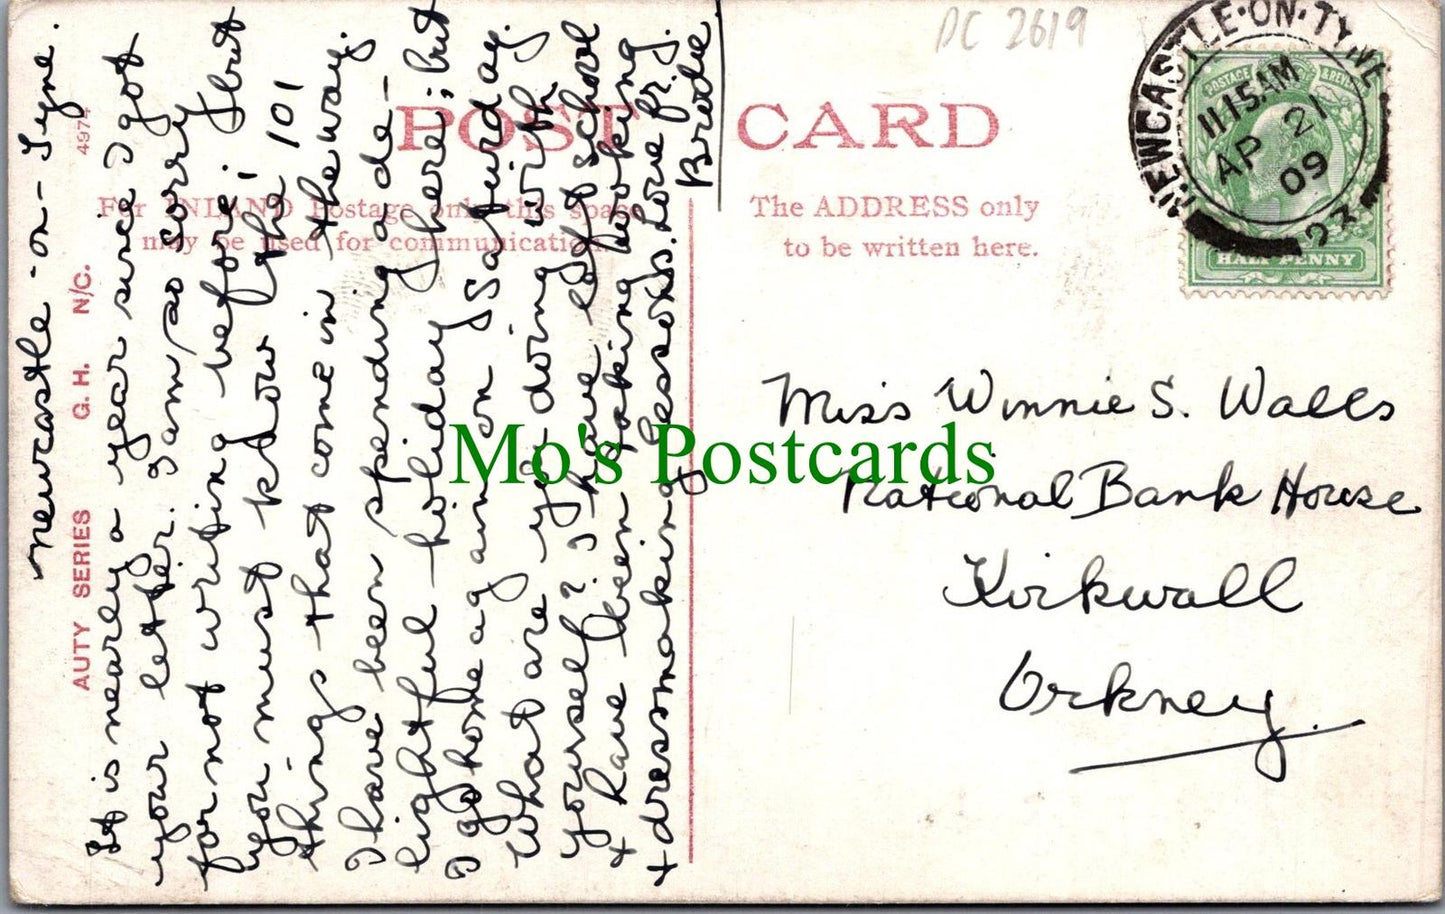 DC 2619
POST CARD
For INLAND Postage only this space
may be used for communication.
The ADDRESS only
to be written here.
AUTY SERIES G. H. N/C. 4974
NEWCASTLE·ON·TYNE
11 15 AM
AP 21
09
23
POSTAGE & REVENUE
HALF PENNY
Newcastle-on-Tyne.
It is nearly a year since I got
your letter. I am so sorry
for not writing before; but
you must know the 101
things that come in the way.
I have been spending a de-
lightful holiday here; but
I go home again on Saturday.
What are you doing with
yourself? I have left school
+ have been taking cooking
+ dressmaking lessons. Love fr.
Miss Winnie S. Walls
National Bank House
Kirkwall
Orkney.
Mo's Postcards